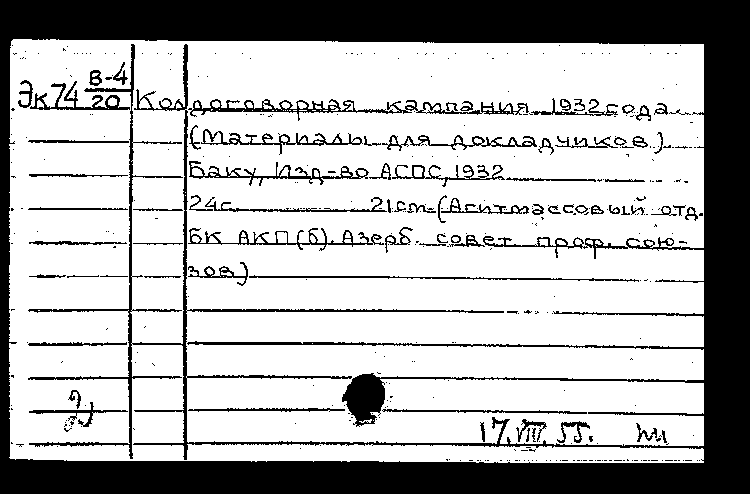 Эк74 В-4/20 Колдоговорная кампания 1932 года.
(Материалы для докладчиков)
Баку, Изд-во АСПС, 1932
24с. 21см. (Агитмассовый отд.
БК АКП(б). Азерб. совет проф. сою-
зов)
2
17.VIII.55.